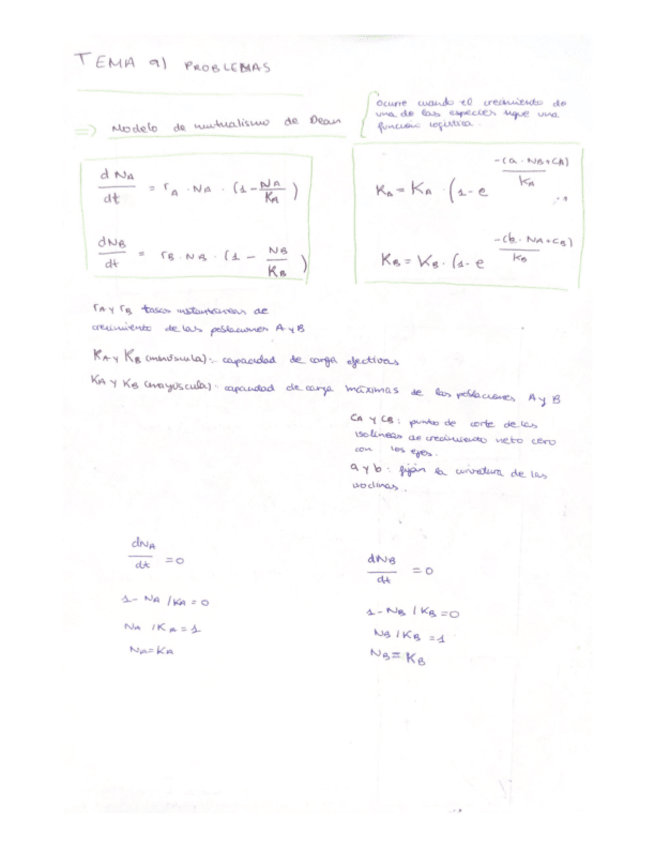 TEMA 9) PROBLEMAS
ocurre cuando el crecimiento de
una de las especies sigue una
función logística.
=> Modelo de mutualismo de Dean
dNA/dt = rA · NA · (1 - NA/KA)
KA = KA · (1 - e^(-(a · NB + CA)/KA)
dNB/dt = rB · NB · (1 - NB/KB)
KB = KB · (1 - e^(-(b · NA + CB)/KB)
rA y rB tasas instantáneas de
crecimiento de las poblaciones A y B
KA y KB (minúscula): capacidad de carga efectivas
KA y KB (mayúscula): capacidad de carga máximas de las poblaciones A y B
CA y CB: punto de corte de las
isolíneas de crecimiento neto cero
con los ejes.
a y b: fijan la curvatura de las
isoclinas.
dNA/dt = 0
dNB/dt = 0
1 - NA / KA = 0
1 - NB / KB = 0
NA / KA = 1
NB / KB = 1
NA = KA
NB = KB